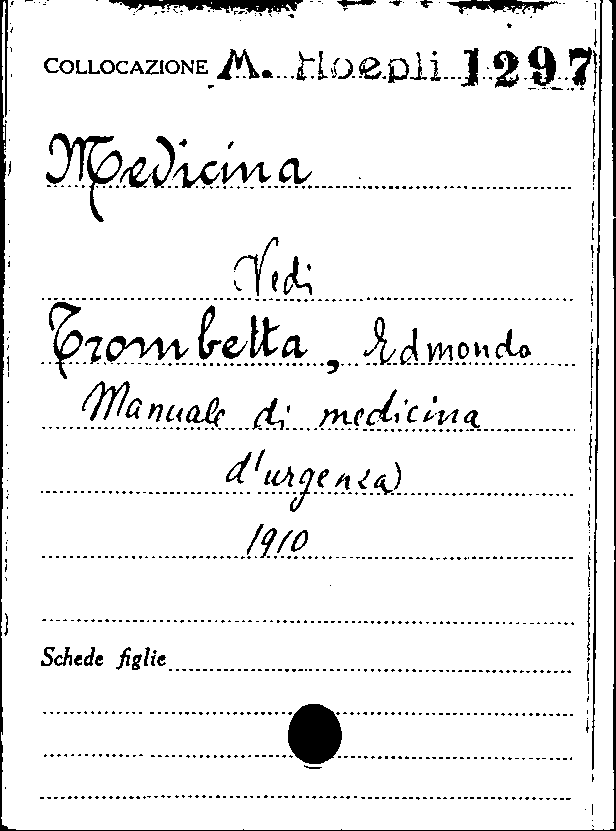 COLLOCAZIONE M. Hoepli 1297
Medicina
Vedi
Trombetta, Edmondo
Manuale di medicina
d'urgenza
1910
Schede figlie